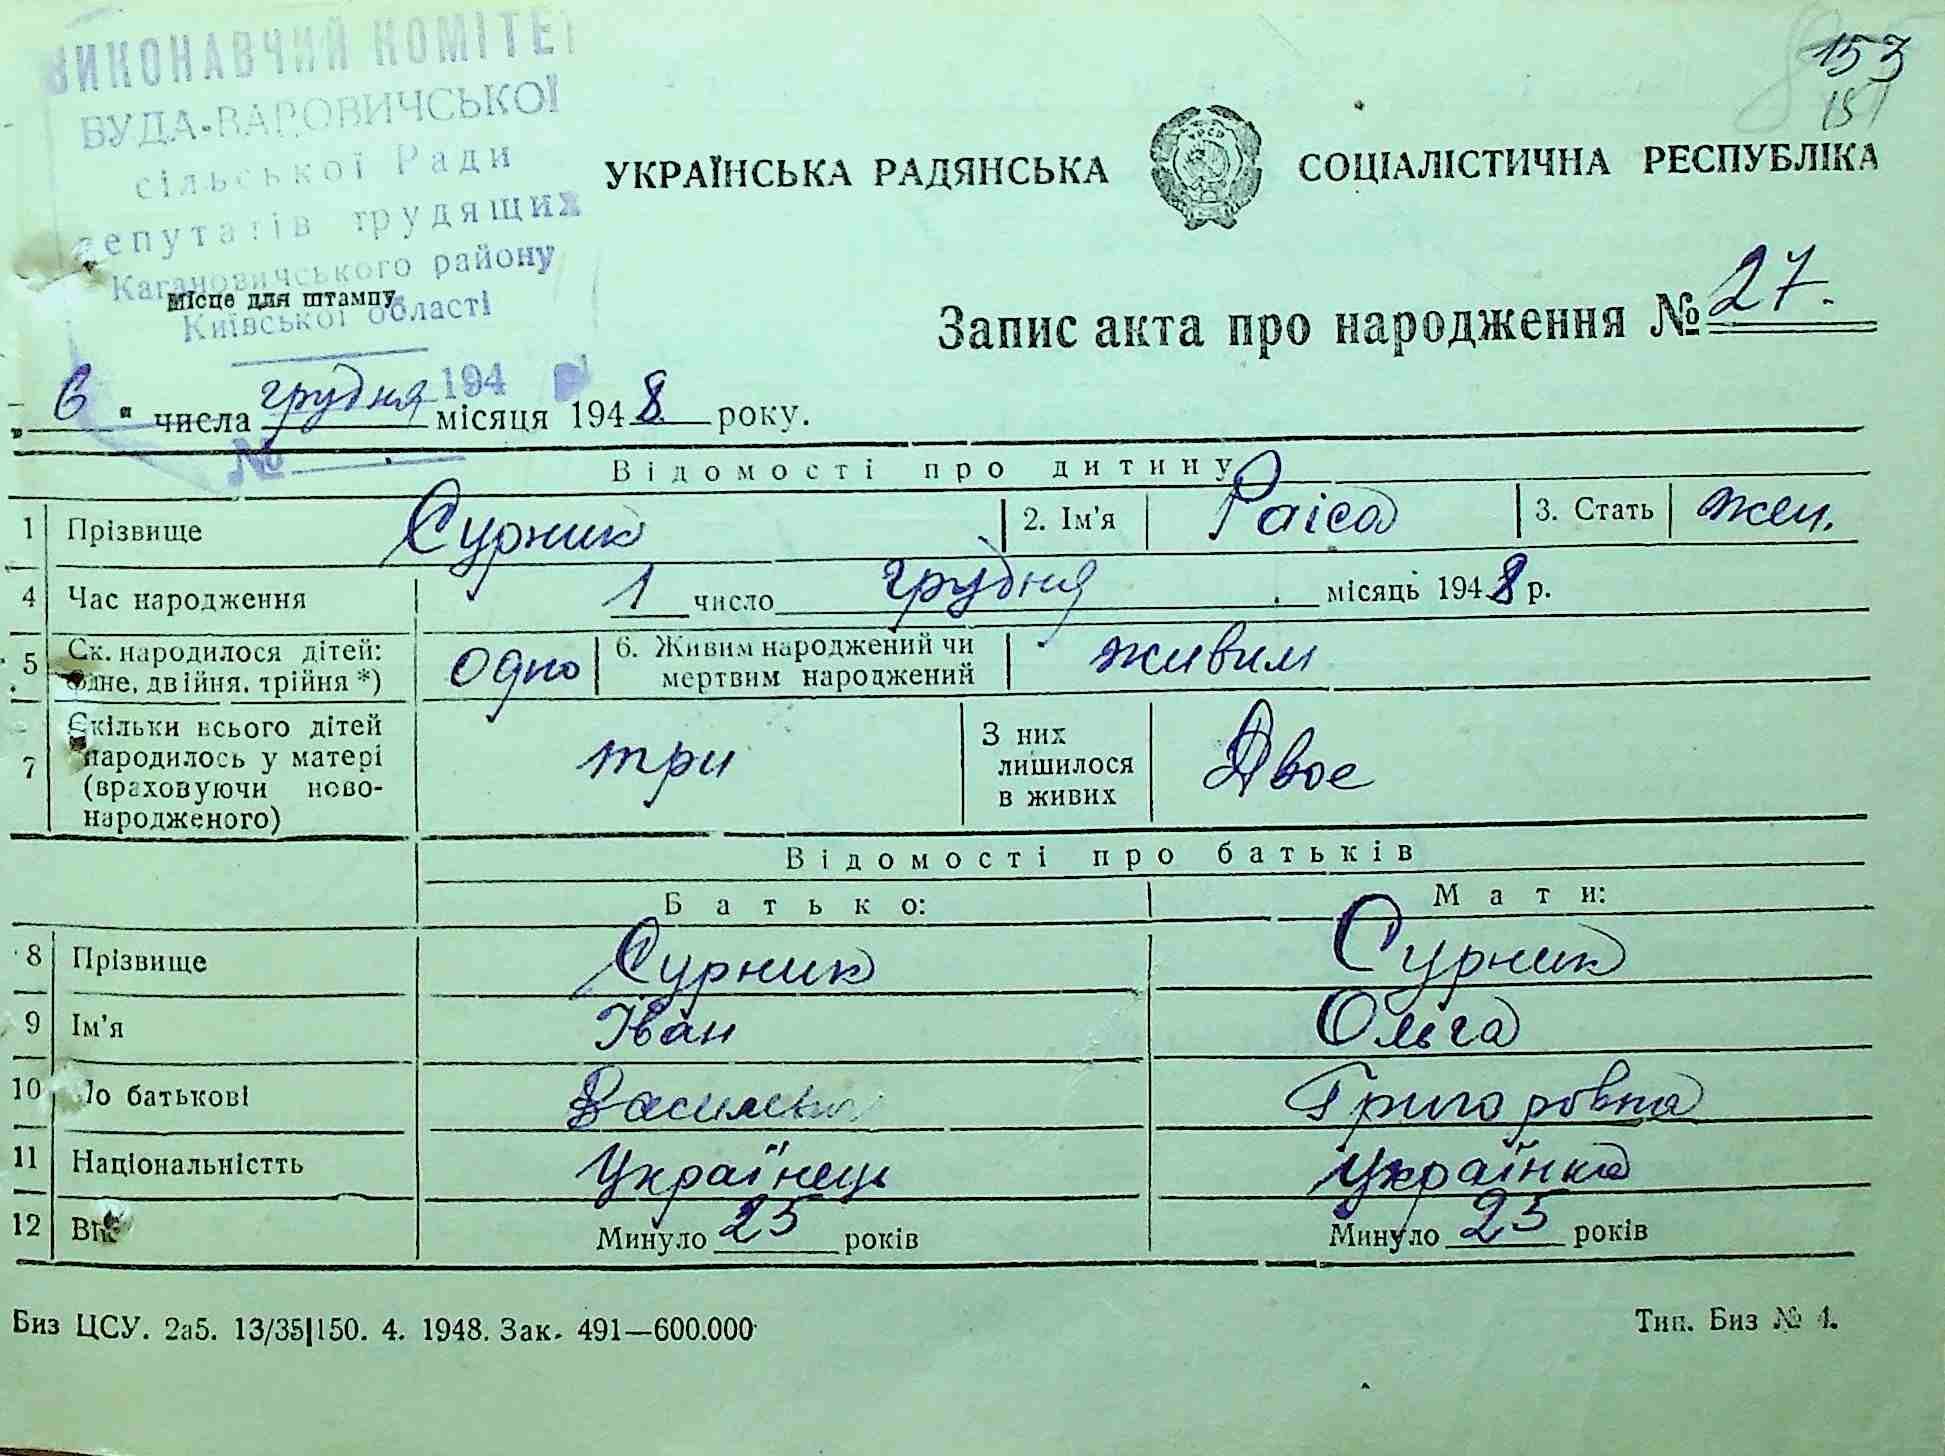 ВИКОНАВЧИЙ КОМІТЕТ
БУДА-ВАРОВИЧСЬКОЇ
сільської Ради
депутатів трудящих
Кагановичського району
Київської області
Місце для штампу
153
151
УКРАЇНСЬКА РАДЯНСЬКА СОЦІАЛІСТИЧНА РЕСПУБЛІКА
Запис акта про народження № 27.
194
„ 6 " числа грудня місяця 1948 року.
№
Відомості про дитину
1 Прізвище Сурник 2. Ім'я Раіса 3. Стать жен.
4 Час народження 1 число грудня місяць 1948 р.
5 Ск. народилося дітей: одне, двійня, трійня *) одно 6. Живим народжений чи мертвим народжений живим
7 Скільки всього дітей народилось у матері (враховуючи ново-народженого) три З них лишилося в живих Двое
Відомості про батьків
Батько: Мати:
8 Прізвище Сурник Сурник
9 Ім'я Іван Ольга
10 По батькові Григоровна
11 Національністть Українець Українка
12 Вік Минуло 25 років Минуло 25 років
Биз ЦСУ. 2а5. 13/35|150. 4. 1948. Зак. 491—600.000 Тип. Биз № 4.